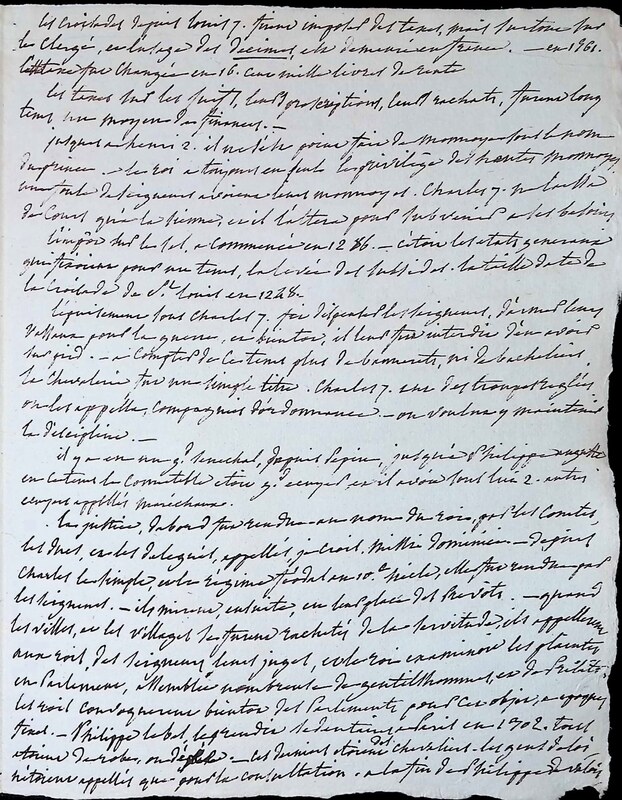 les croisades depuis louis 7. firent imposer des taxes, mais surtout sur
le clergé, en l'usage des Decimes, est demeuré en france. — en 1561.
fut changée en 16. cent mille livres de rente
les taxes sur les juifs, leurs proscriptions, leurs rachats, furent long
tems un moyen de finances. —
jusques a henri 2. il ne de monnoye sous le nom
du prince. — le roi a toujours eu seul le privilege des hautes monnoyes
une foule de seigneurs avoient leurs monnoyes. Charles 7. ne laissa
de cours que la sienne, et il l'altera pour subvenir a ses besoins
l'impôt sur le sel, a commencé en 1286. — c'etoit les etats generaux
qui pour un tems, la levée des subsides. la taille date de
la Croisade de St. Louis en 1248.
l'épuisement sous Charles 7. fit dispenser les seigneurs, d'armer leurs
vassaux pour la guerre, et bientot, il leur fut interdit d'en avoir
sur pied. — a compter de ce tems plus de bannerets, ni de bacheliers
la chevalerie fut un simple titre. Charles 7. eut des troupes reglées
on les appella, compagnies d'ordonnance — on voulut y maintenir
la discipline. —
il y a eu un gd. senechal, depuis pepin, jusqu'a Philippe auguste
en ce tems le Connétable etoit gd. ecuyer, et il avoit sous lui 2. autres
ecuyers appellés maréchaux.
la justice, d'abord fut rendue au nom du roi, par les Comtes,
les ducs, et les delegués, appellés, je crois, missi dominici — depuis
Charles le simple et le regime féodal au 10.e siècle, elle fut rendue par
les seigneurs. — ils mirent, ensuite, en leur place des Prévots. — quand
les villes, et les villages se furent rachetés de la servitude, ils appellerent
aux rois, des seigneurs leurs juges, et le roi examinoit les plaintes
en Parlement, assemblée nombreuse de gentilshommes, et de Prélats.
les rois convoquerent bientot des Parlements pour cet objet, a epoques
fixes. — Philippe le bel, le rendit sedentaire a Paris en 1302. tous
etoient de robe, ou d'épée. — ces derniers etoient des chevaliers. les gens de loi
n'etoient appellés que pour la consultation. a la fin de Philippe de valois